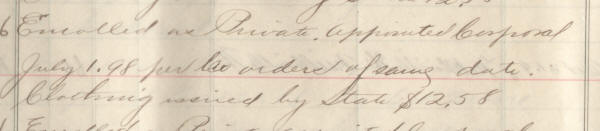 6 Enrolled as Private. Appointed Corporal
July 1. 98 per Co orders of same date.
Clothing issued by State $12.58
Enrolled